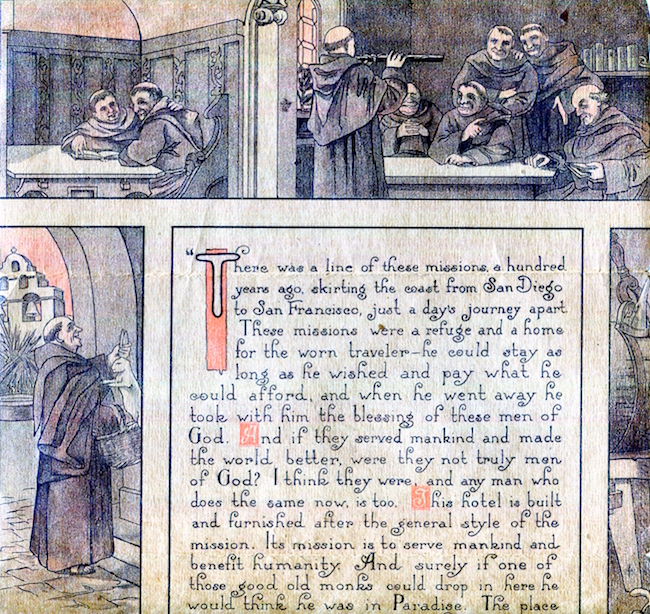 "There was a line of these missions, a hundred
years ago, skirting the coast from San Diego
to San Francisco, just a day's journey apart.
These missions were a refuge and a home
for the worn traveler—he could stay as
long as he wished and pay what he
could afford, and when he went away he
took with him the blessing of these men of
God. And if they served mankind and made
the world better, were they not truly men
of God? I think they were, and any man who
does the same now, is too. This hotel is built
and furnished after the general style of the
mission. Its mission is to serve mankind and
benefit humanity. And surely if one of
those good old monks could drop in here he
would think he was in Paradise. The place